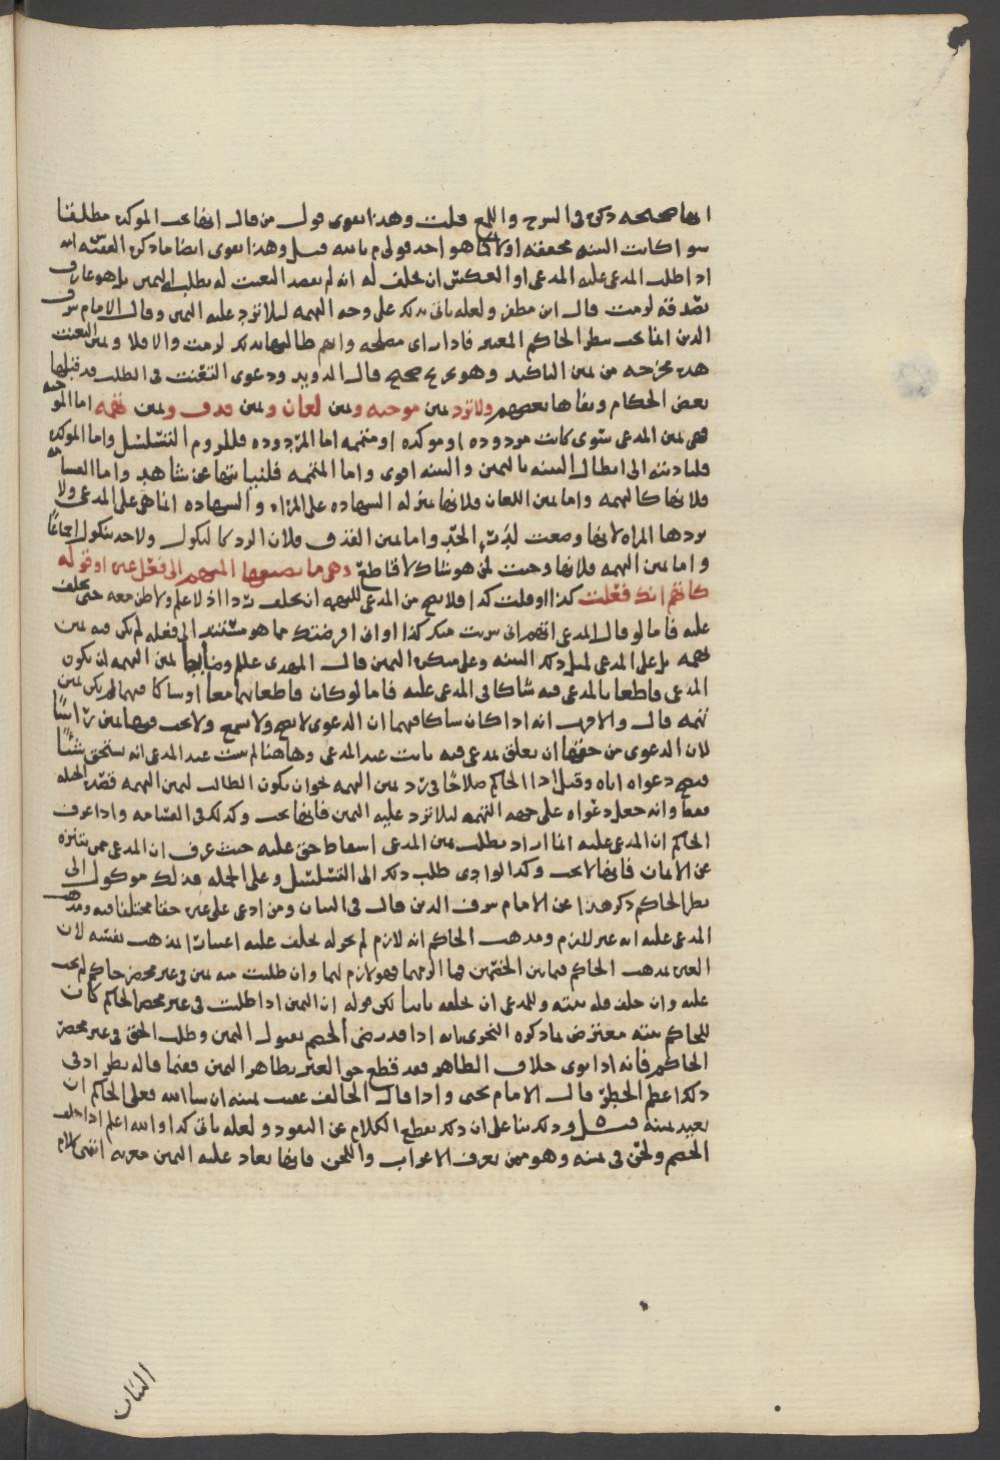 انها صحيحه ذكره في الشرح واللمع قلت وهذا يقوى قول من قال انها تجب الموكده مطلقا
سوا كانت البينه محققه اولا كما هو احد قولي م بالله قيل وهذا يقوى ايضا ما ذكره الفقيه انه
اذا طلب المدعى عليه المدعي او العكس ان يحلف له انه لم يقصد التعنت له بطلب اليمين بل هو عارف
بصدقه لزمت قال ابن مظفر ولعله ياتي بذلك على وجه التهمه ليلا ترد عليه اليمين وقال الامام شرف
الدين انما تجب بنظر الحاكم المعتبر فاذا راى مصلحه واتهم طالبها بذلك لزمت والا فلا ويمين التعنت
هذه مخرجه من يمين التاكيد وهو تخريج صحيح قال الدويد ودعوى التعنت في الطلب قد قبلها
بعض الحكام ونفاها بعضهم ولا ترد يمين موجبه ويمين لعان ويمين قذف ويمين تهمه اما الموجبه
فهي يمين المدعي سوى كانت مردوده او موكده او متممه اما المردوده فللزوم التسلسل واما الموكده
فلتاديته الى ابطال البينه باليمين والبينه اقوى واما المتممه فلنيابتها عن شاهد واما القسامه
فلانها كالتهمه واما يمين اللعان فلانها بمنزله الشهاده على المراه والشهاده انما هي على المدعي ولا
تردها المراه لانها وضعت لدرء الحد واما يمين القذف فلان الرد كالنكول ولا حد بنكول اجماعا
واما يمين التهمه فلانها وجبت لمن هو شاك لا قاطع وهي ما يضيفها المتهم الى فعل غيره او قوله
كاتهم انك فعلت كذا او قلت كذا فلا يصح من المدعي للتهمه ان يحلف ردا اذ لا علم ولا ظن معه حتى يحلف
عليه فاما لو قال المدعي اتهم اني شريت منك كذا او اني اقرضتك مما هو مستند الى فعله لم يكن فيه يمين
تهمه بل على المدعي لمثل ذلك البينه وعلى منكره اليمين قال المهدي عللم وضابط يمين التهمه ان يكون
المدعي قاطعا بالمدعى فيه شاكا في المدعى عليه فاما لو كان قاطعا بهما معا او شاكا فيهما لم يكن يمين
تهمه قال والاقرب انه اذا كان شاكا فيهما ان الدعوى لا تصح ولا تسمع ولا تجب فيها يمين راسًا
لان الدعوى من حقها ان يعلق بمدعى فيه ثابت عند المدعي وهاهنا لم يثبت عند المدعي انه يستحق شيئًا
فيصح دعواه اياه وقيل اذا راى الحاكم صلاحًا في رد يمين التهمه نحو ان يكون الطالب ليمين التهمه قصده الحيله
فيها وانه جعل دعواه على جهه التهمه ليلا ترد عليه اليمين فانها تجب وكذلك في القسامه واذا عرف
الحاكم ان المدعى عليه انما اراد بطلب يمين المدعي اسقاط حق عليه حيث عرف ان المدعي ممن يتنزه
عن الايمان فانها لا تجب وكذا لو ادى طلب ذلك الى التسلسل وعلى الجمله فذلك موكول الى
نظر الحاكم ذكر هذا عن الامام شرف الدين قال في البيان ومن ادعى على غيره حقا مختلفا فيه ومذهب
المدعى عليه انه غير لازم ومذهب الحاكم انه لازم لم يجز له يحلف عليه اعتبارا بمذهب نفسه لان
العبره بمذهب الحاكم فيما بين الخصمين فما الزمهما فهو لازم لهما وان طلبت منه يمين في غير محضر حاكم لم تجب
عليه وان حلف فله نيته وللمدعي ان يحلفه ثانيا لكن قوله ان اليمين اذا طلبت في غير محضر الحاكم كان
للحالف نيته معترض بما ذكره النجري بانه اذا قد رضي الخصم بقبول اليمين وطلب الحق في غير محضر
الحاكم فانه اذا نوى خلاف الظاهر فقد قطع حق الغير بظاهر اليمين ففيما قاله نظر اذ في
ذلك اعظم الخطر قال الامام يحيى واذا قال الحالف عقيب يمينه ان شا الله فعلى الحاكم ان
يعيد يمينه قيل و ذلك بنا على ان ذلك يقطع الكلام عن النفوذ ولعله ياتي كذا والله اعلم اذا حلف
الخصم ولحن في يمينه وهو ممن يعرف الاعراب واللحن فانها تعاد عليه اليمين معربه انتهى كلام
البيان